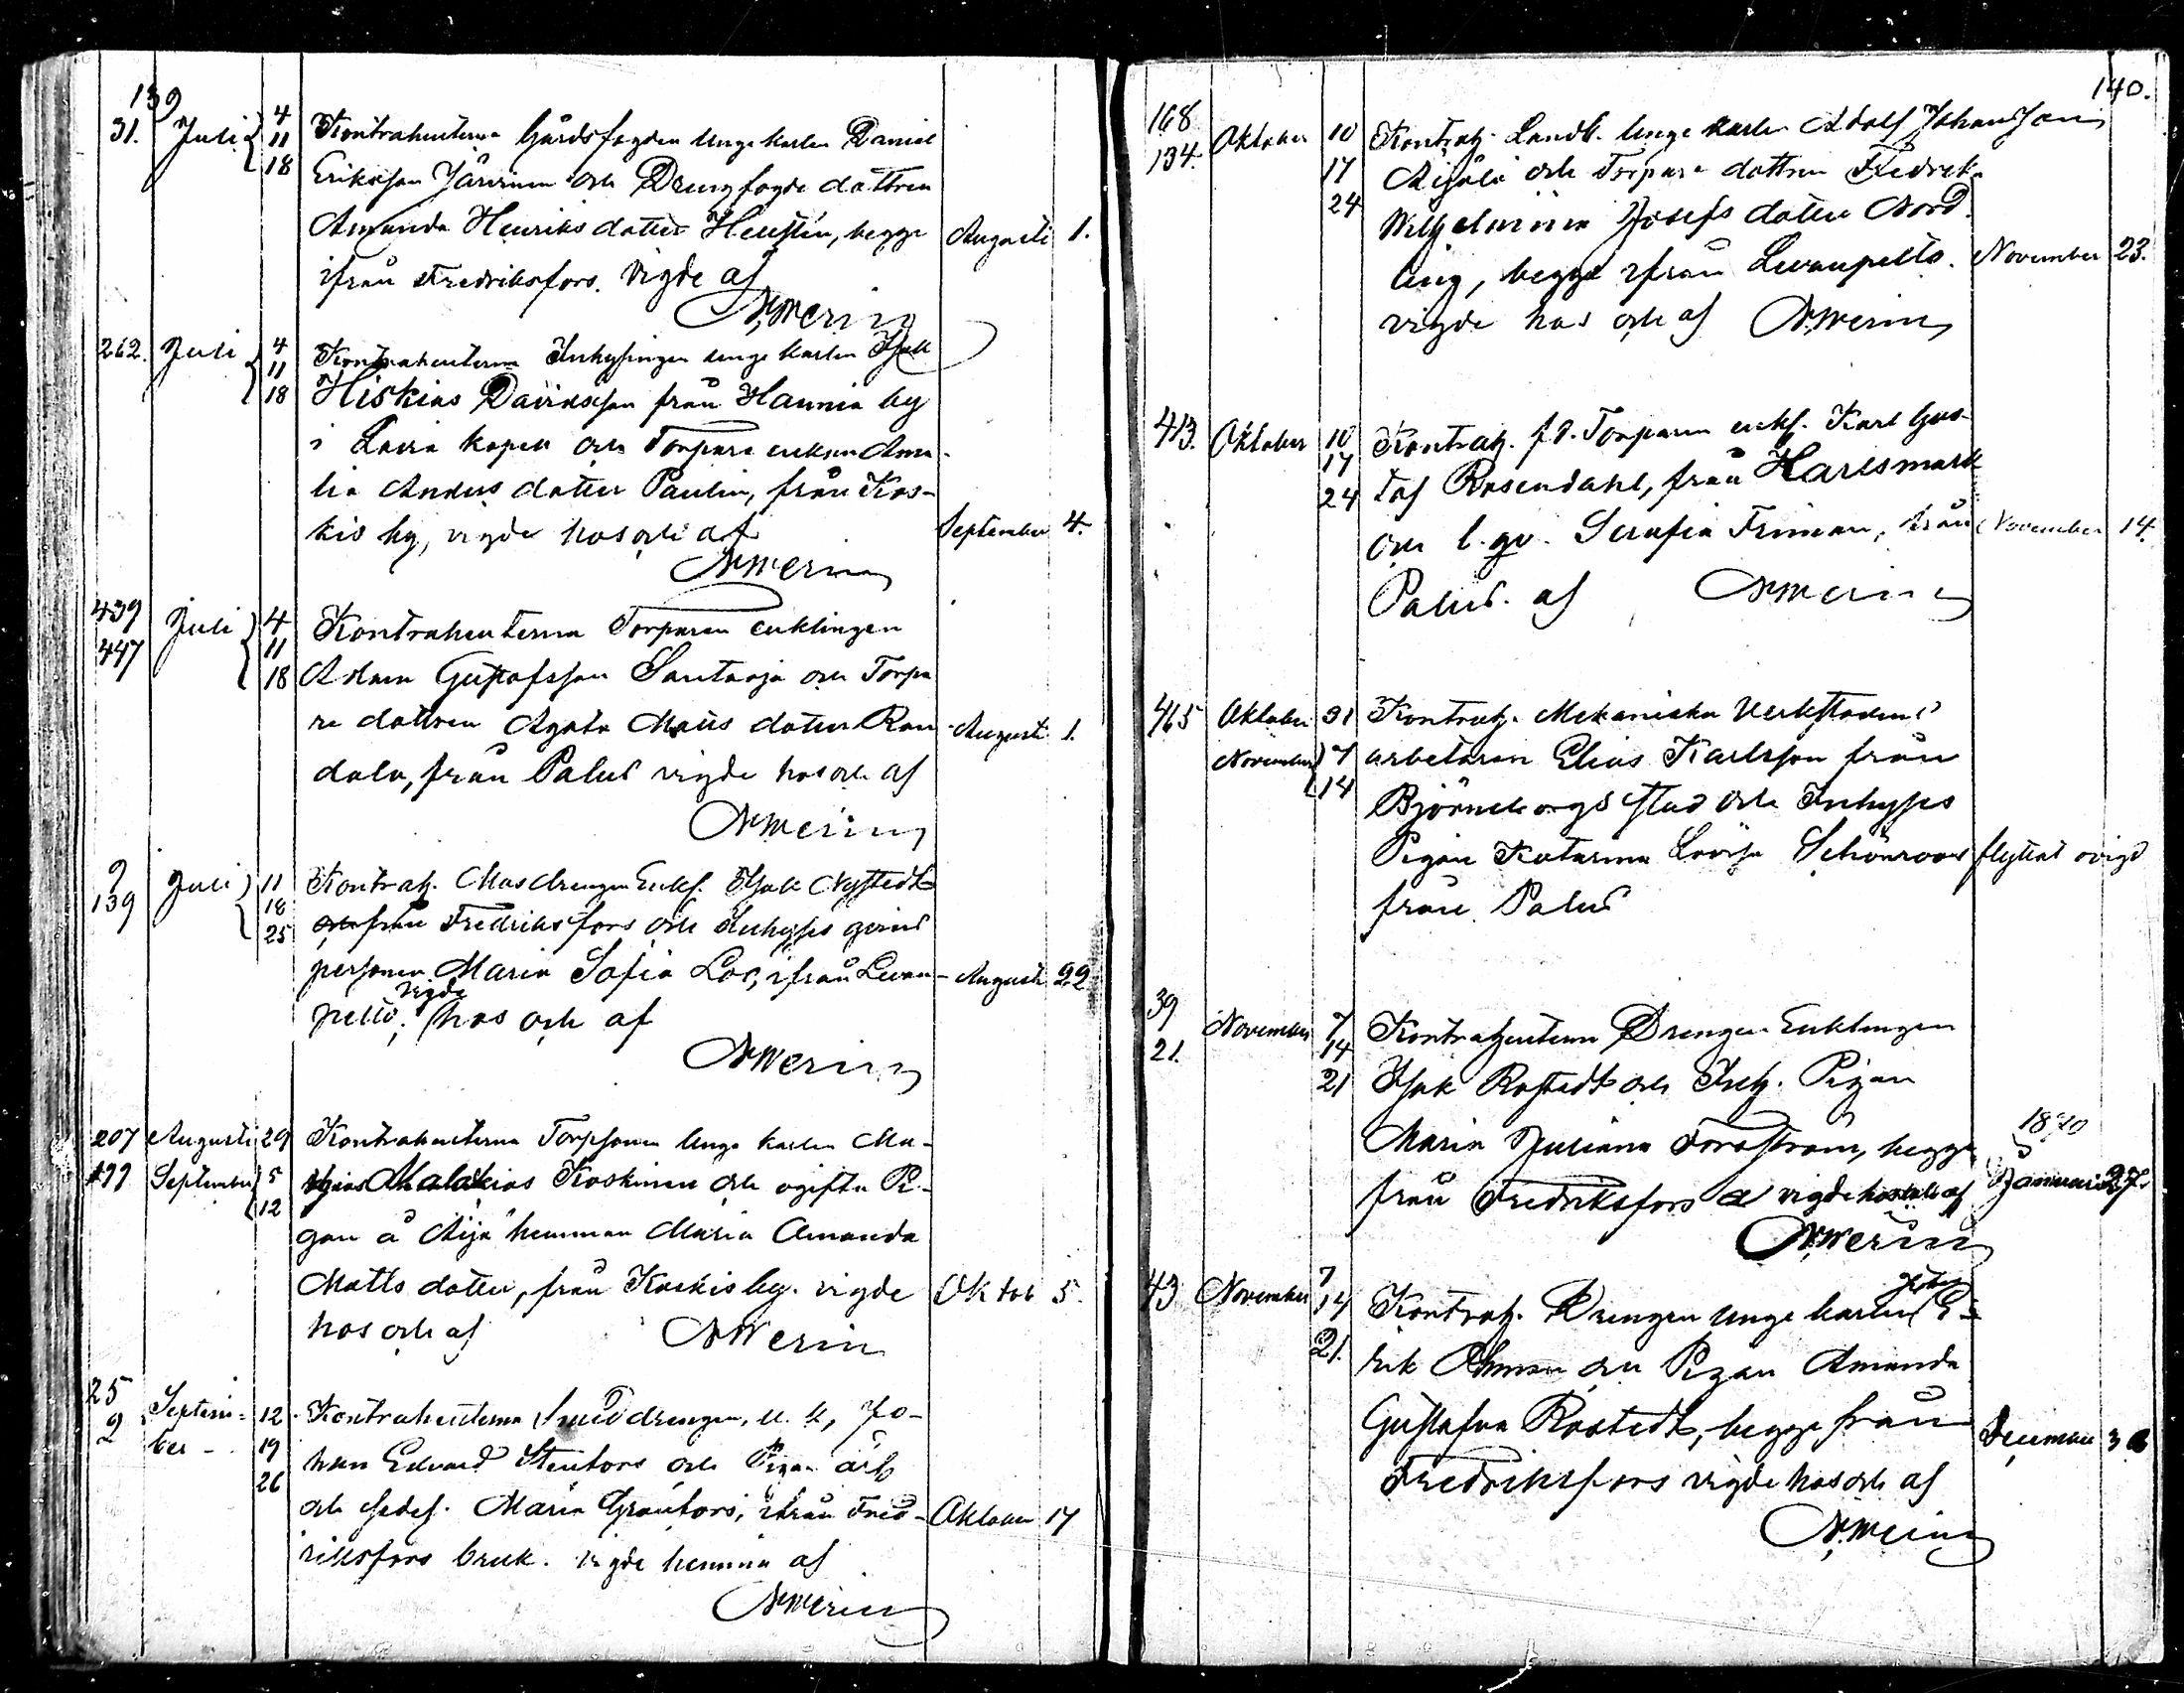 139
31. Juli 4 Kontrahenterna Gårdsfogden Unge karlen Daniel
11
18 Eriksson Järvinen och Drengfogde dottren
Amanda Henriks dotter Hellstén, begge Augusti 1.
ifrån Fredriksfors. Vigde af
262. Juli 4 Kontrahenterna Inhysingen unge karlen Isak
11
18 Hiskias Davidsson från Haunia by
i Lavia kapell och Torpare enkan Ama-
lia Anders dotter Paulin, från Kas-
kis by, vigde hos och af September 4.
439 Juli 4 Kontrahenterna Torparen enklingen
447 11
18 Adam Gustafsson Santaoja och Torpa
re dottren Agata Matts dotter Ran Augusti 1.
dala, från Palus vigde hos och af
9 Juli 11 Kontrah. Masdrengen Enkl. Isak Nystedt
139 18
25 från Fredriksfors och Inhyses qvins
personen Maria Sofia Loo, ifrån Levan- Augusti 22
pelto; vigde hos och af
207 Augusti 29 Kontrahenterna Torpsonen Unge karlen Ma-
September 5 Malakias Koskinen och ogifta Pi-
12
gan å Äijä hemman Maria Amanda
Matts dotter, från Kaskis by. vigde Oktob 5.
hos och af
25 Septem- 12 Kontrahenterna Smeddrengen, u. k, Jo-
2 ber 19 han Edvard Stenfors och Pigan
26
och Maria Granfors, ifrån Fred- Oktober 17
riksfors bruk. vigde hemma af
140.
168 Oktober 10 Kontrah. Landb. Unge karlen Adolf Johansson
134. 17 Äijälä och Torpare dottren Fredrika
24 Wilhelmina Josefs dotter Nord
ling, begge ifrån Levanpelto. November 23.
vigde hos och af
413. Oktober 10 Kontrah. f.d. Torparen enkl. Karl Gus-
17
24 taf Rosendahl, från Harismark
och l. qv. Serafia Friman, från November 14.
Palus. af
465 Oktober 31 Kontrah. Mekaniska Verkstadens
November 7 arbetaren Elias Karlsson från
14 Björneborgs stad och Inhyses
Pigan Katarina Lovisa Schönroos flyttat ovigd
från Palus
39 November 7 Kontrahenterna Drengen Enklingen
21. 14
21 Isak Rostedt och Inh. Pigan
Maria Juliana Forsström, begge 1870
från Fredriksfors vigde hos och af Januari 27.
43 November 7
14 Kontrah. Drengen unge karlen E-
21. rik Öhman och Pigan Amanda
Gustafva Rostedt, begge från December
Fredriksfors vigde hos och af